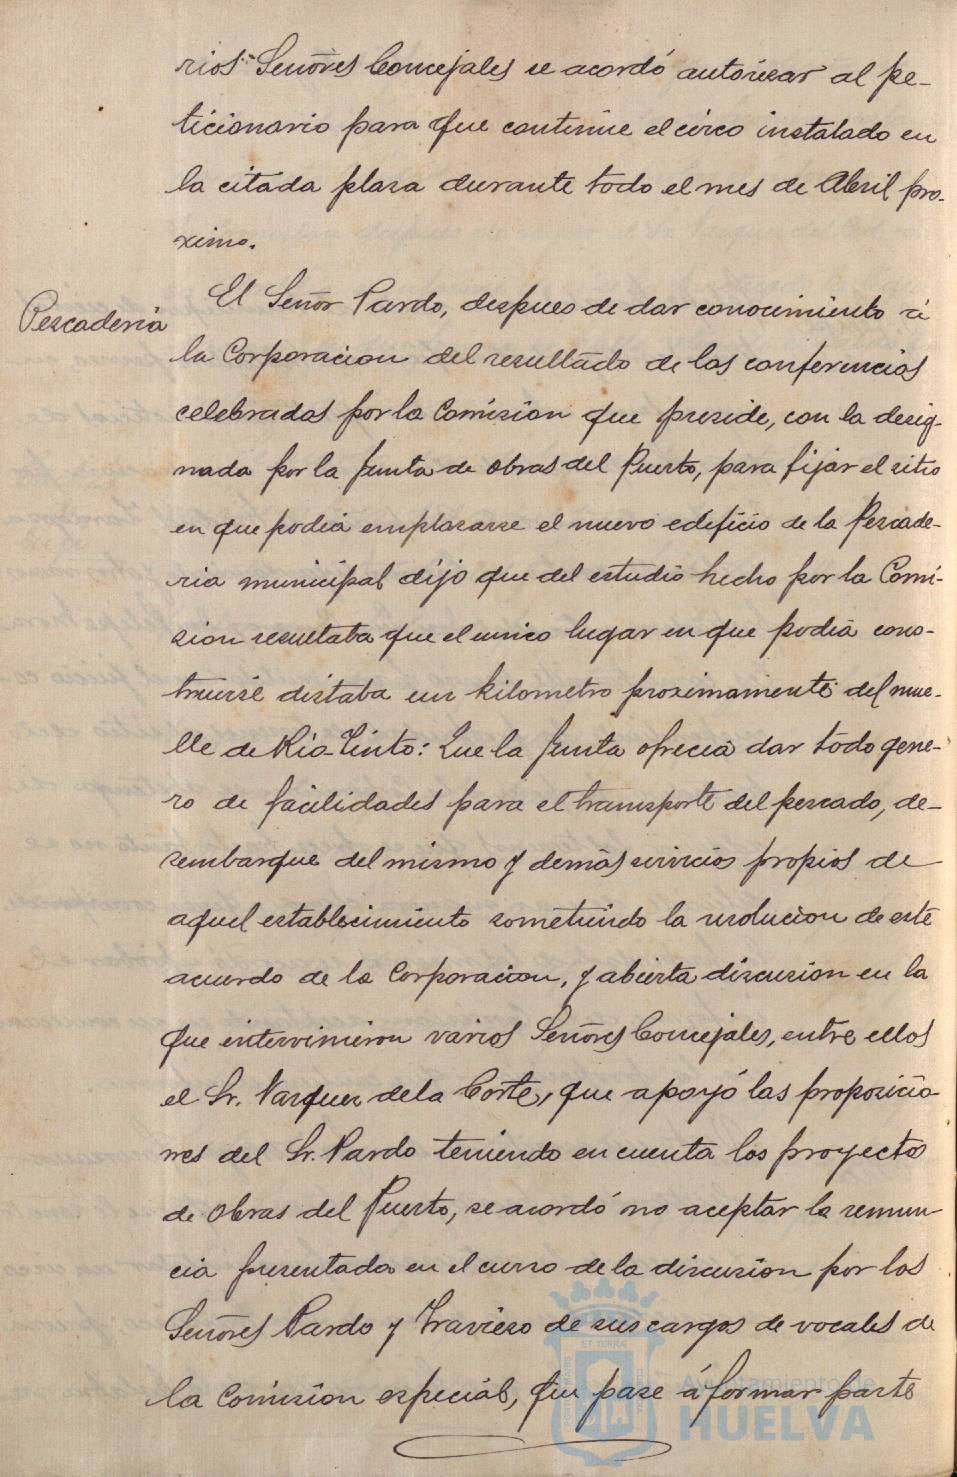 rios Señores Concejales se acordó autorizar al pe-
ticionario para que continúe el circo instalado en
la citada plaza durante todo el mes de Abril pro-
ximo.
Pescadería
El Señor Pardo, despues de dar conocimiento á
la Corporacion del resultado de las conferencias
celebradas por la Comision que preside, con la desig-
nada por la Junta de Obras del Puerto, para fijar el sitio
en que podia emplazarse el nuevo edificio de la Pescade-
ria municipal dijo que del estudio hecho por la Comi-
sion resultaba que el unico lugar en que podia cons-
truirse distaba un kilometro proximamente del mue-
lle de Rio-Tinto: Que la Junta ofrecia dar todo gene-
ro de facilidades para el transporte del pescado, de-
sembarque del mismo y demás servicios propios de
aquel establecimiento sometiendo la resolucion de este
acuerdo de la Corporacion, y abierta discusion en la
que intervinieron varios Señores Concejales, entre ellos
el Sr. Vazquez de la Corte, que apoyó las proposicio-
nes del Sr. Pardo teniendo en cuenta los proyectos
de Obras del Puerto, se acordó no aceptar la renun-
cia presentada en el curso de la discusion por los
Señores Pardo y Travieso de sus cargos de vocales de
la Comision especial, que pase á formar parte
Ayuntamiento de
HUELVA